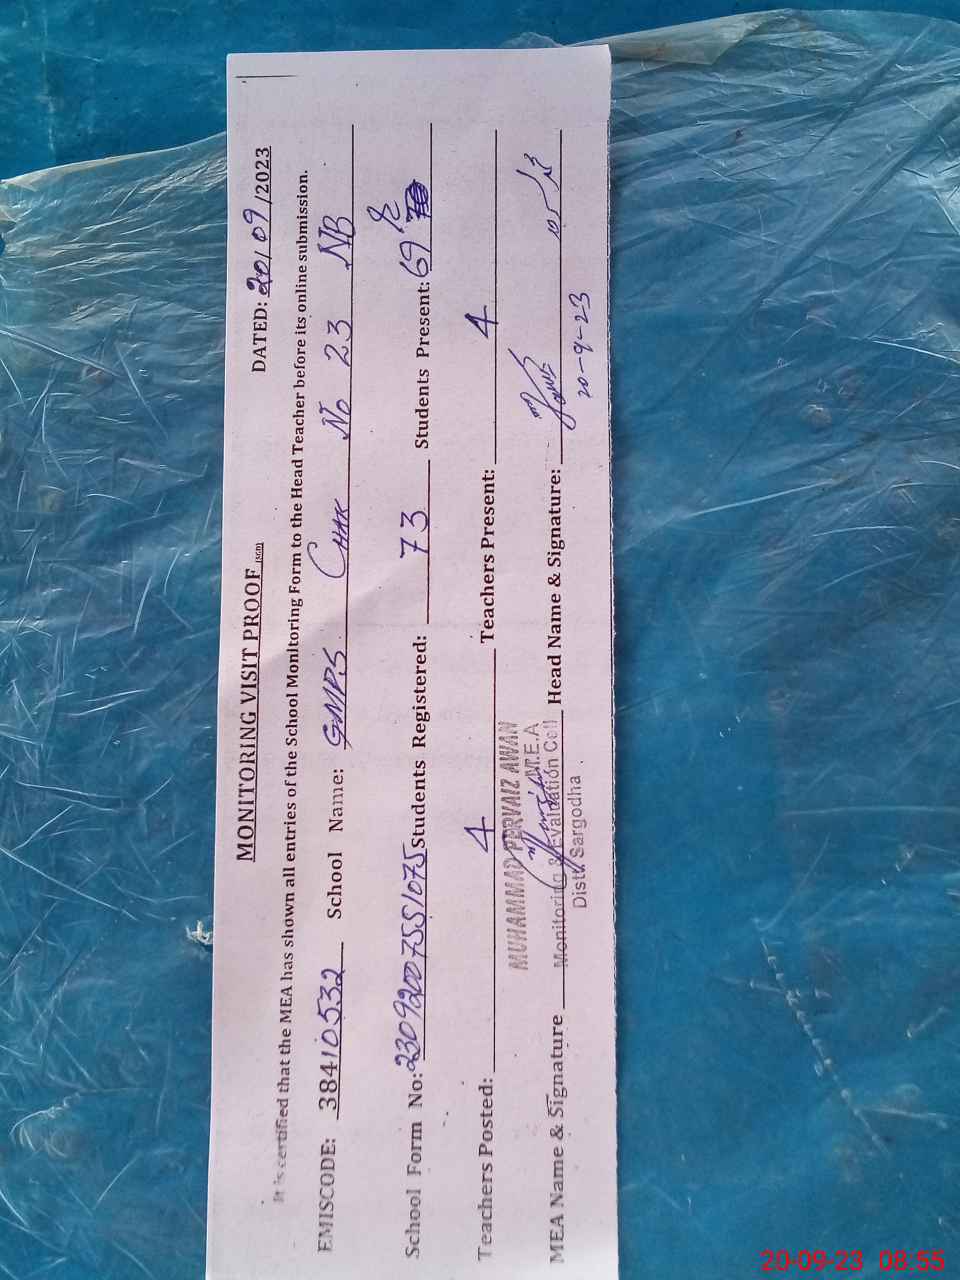 MONITORING VISIT PROOF (SGD)
DATED: 20/09/2023
It is certified that the MEA has shown all entries of the School Monitoring Form to the Head Teacher before its online submission.
EMISCODE: 38410532 School Name: GMPS CHAK No 23 NB
School Form No: 23092007551075 Students Registered: 73 Students Present: 69
Teachers Posted: 4 Teachers Present: 4
MUHAMMAD PERVAIZ AWAN
M.E.A
MEA Name & Signature Monitoring & Evaluation Cell Head Name & Signature:
Distt. Sargodha
20-9-23
20-09-23 08:55